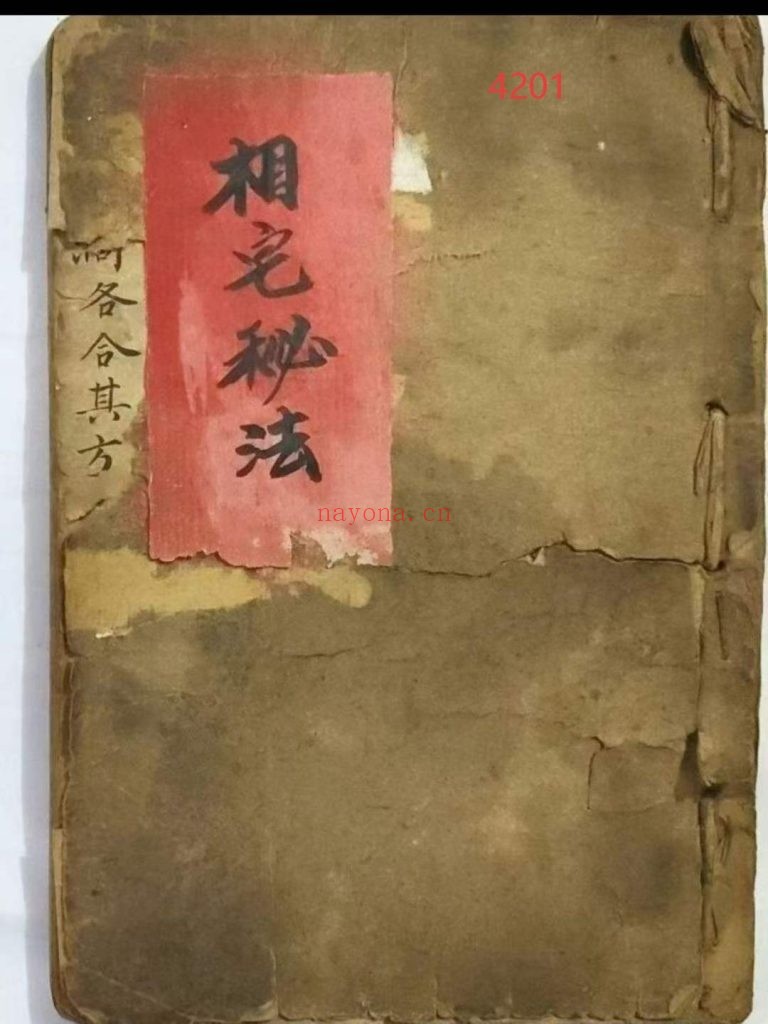 4201
相宅秘法
各合其方
nayona.cn